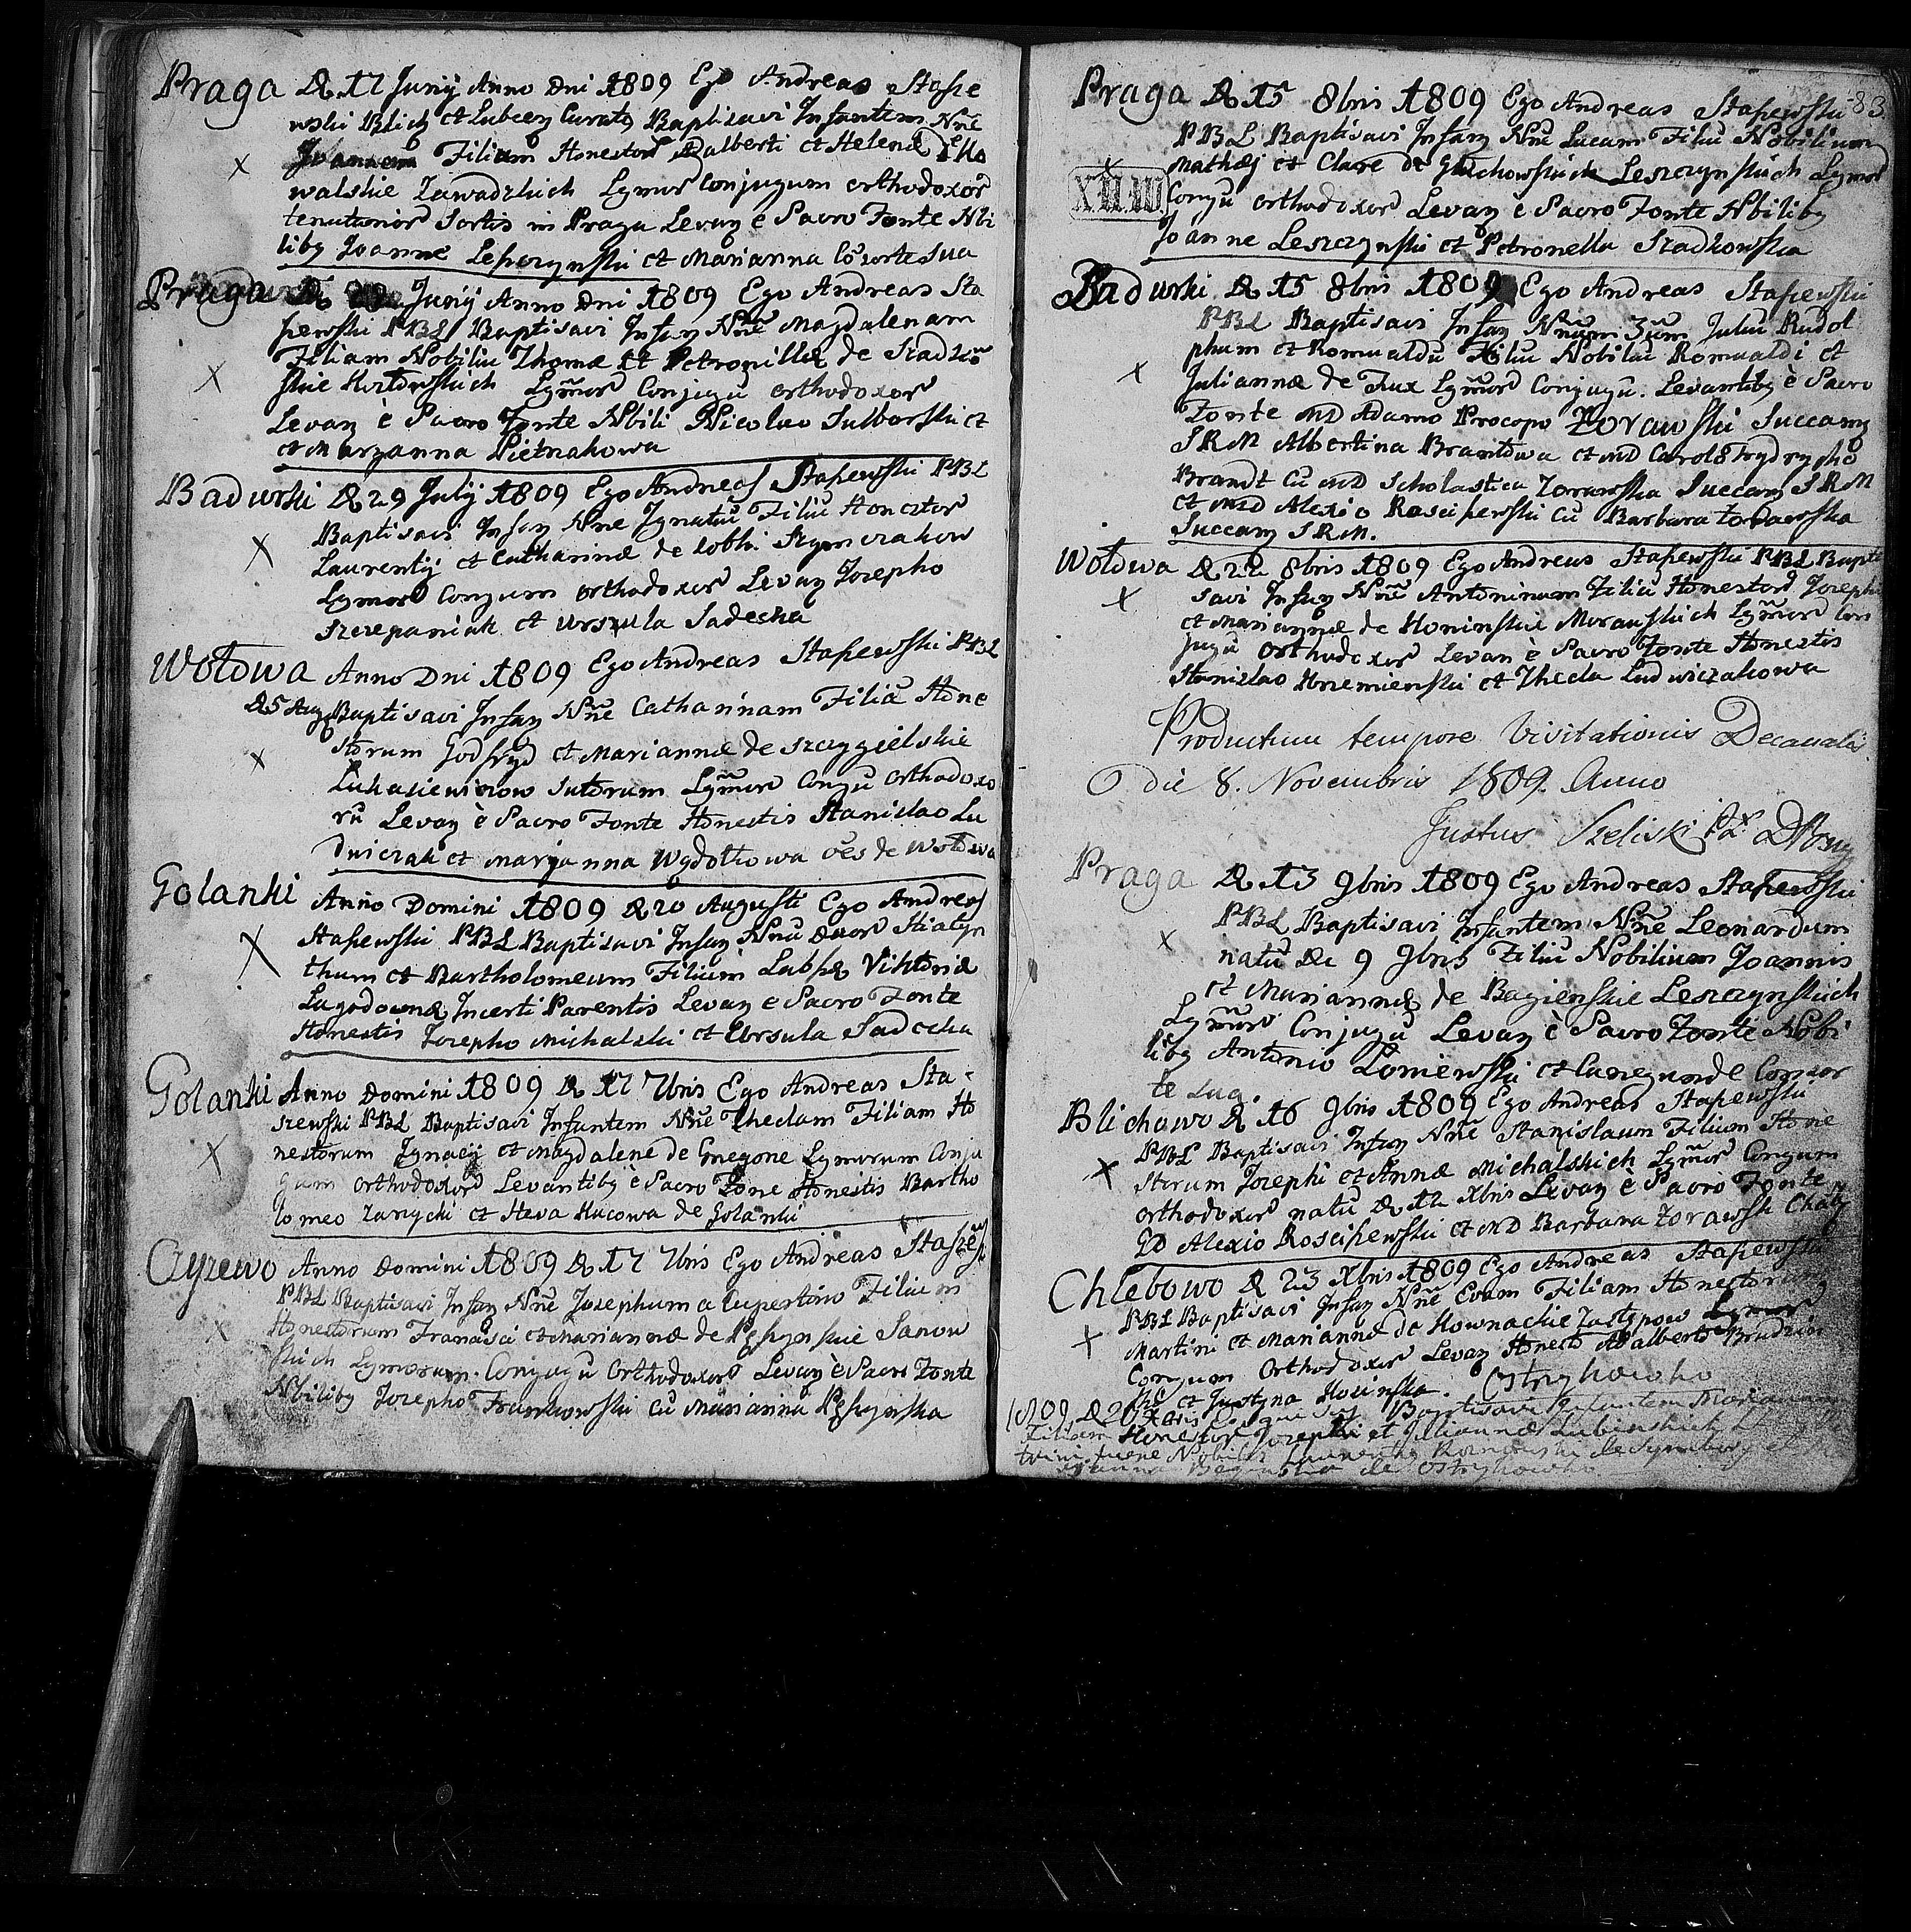 Praga D. 17 Junij Anno Dni 1809 Ego Andreas Stasze
wski Blich et Lubeen Curatg Baptisavi Infantem Nñe
Joannam Filiam Honestor Adalberti et Helenæ
walskie Zawadzkich Lgmor Conjugum orthodoxor
tenutarior Sortis in Praga Levan è Sacro Fonte Nbi
libg Joanne Leszczynski et Marianna Cosorte Sua
Praga Junij Anno Dni 1809 Ego Andreas Sta
szewski PBL Baptisavi Infan Nñe Magdalenam
Filiam Nobiliu Thomæ et Petronillæ de
skie Lgm̃or Conjugu orthodoxor
Levan è Sacro Fonte Nbili Nicolao et
et Maryanna Pietrzakowa
Badurki D. 29 July 1809 Ego Andreas Staszewski PBL
Baptisavi Infan Nñe Ignatiũ Filiũ Honestor
Laurentij et Catharinæ de Szymczakow
Lgmor Conjum orthodoxor Levan Josepho
Szczepaniak et Urszula Sadecka
Wołowa Anno Dni 1809 Ego Andreas Staszewski PBL
D. 5 Aug Baptisavi Infan Nñe Catharinam Filiã Hone
storum Godfryd et Mariannæ de
Lukasiewiczow Sutorum Lgm̃or Conju Orthodoxo
rũ Levan è Sacro Fonte Honestis Stanislao Lu
dwiczak et Maryanna oẽs de Wołowa
Golanki Anno Domini 1809 D. 20 Augusti Ego Andreas
Staszewski PBL Baptisavi Infan Nñu duor Hiacyn
thum et Bartholomeum Filium Viktoriæ
Incerti Parentis Levan è Sacro Fonte
Honestis Josepho Michalski et Ursula Sadecka
Golanki Anno Domini 1809 D. 17 7bris Ego Andreas Sta-
szewski PBL Baptisavi Infantem Nñe Theclam Filiam Ho
nestorum Ignacij et Magdalene de Gregone Lgmorum Conju
gum orthodoxor Levantibg è Sacro Fone Honestis Bartho
lomeo Zarzycki et Heva Kucowa de Golanki
Cyzewo Anno Domini 1809 D. 17 7bris Ego Andreas
PBL Baptisavi Infan Nñe Josephum a Cupertino Filium
Honestorum Francisci et Mariannæ de Sanow
skich Lgmorum Conjugu Orthodoxor Levan è Sacro Fonte
Nbilibg Josepho cu Marianna
83
Praga D. 15 8bris 1809 Ego Andreas Staszewski
PBL Baptisavi Infan Nñe Lucam Filiu Nobilium
Mathæj et Claræ de Leszczynskich Lgmor
XII.III
Conju orthodoxor Levan è Sacro Fonte Nbilibg
Joanne Leszczynski et Petronella Szadkowska
Badurki D. 15 8bris 1809 Ego Andreas Staszewski
PBL Baptisavi Infan Juliu Rudol
phum et Romualdu Filiu Nobiliu Romualdi et
Juliannæ de Fux Lgm̃or Conjugu. Levantibg è Sacro
Fonte MD Adamo Procopo Zorawski Succamg
SRM Albertina Brantowa et MD Carolo Frydrycho
Brandt Cu MD Scholastica Zorawska Succam SRM
et MD Alexio Rosciszewski Cu Barbara Zorawska
Succam SRM.
Wołowa D. 22 8bris 1809 Ego Andreas Staszewski PBL Bapti
savi Infan Nñe Antoninam Filiã Honestor Josephi
et Mariannæ de Koninskie Morawskich Lgm̃or Con
jugu orthodoxor Levan è Sacro Fonte Honestis
Stanislao Krzemienski et Thecla Ludwiczakowa
Productum tempore Visitationis Decanalis
die 8. Novembris 1809. Anno
Justus Szeliski
Praga D. 13 9bris 1809 Ego Andreas Staszewski
PBL Baptisavi Infantem Nñe Leonardum
natũ D. 9 9bris Filiũ Nobilium Joannis
et Mariannæ de Bagienskie Leszczynskich
Lgm̃or Conjugu Levan è Sacro Fonte Nobi
libg Antonio Łoniewski et Cunegunde Consor
te Sua
Blichowo D. 16 9bris 1809 Ego Andreas Staszewski
PBL Baptisavi Infan Nñe Stanislaum Filium Hone
storum Josephi et Annæ Michalskich Lgm̃or Conjum
orthodoxor natũ D. 12 xbris Levan è Sacro Fonte
GD Alexio Rosciszewski et MD Barbara Zorawsk
Chlebowo D. 23 Xbris 1809 Ego Andreas Staszewski
PBL Baptisavi Infan Nñe Evam Filiam Honestorum
Martini et Mariannæ de Kownackie Zastępow Lgmor
Conjum Orthodoxor Levan Honesto Adalberto Brudzin
ski et Justyna Kosinska. Ostrzykowko
1809 D. 26 Xbris Baptisavi Infantem Mariannam
Filiam Honestor Josephi et Juliannæ Lubinskich
Nobilis
de Ostrzykowko